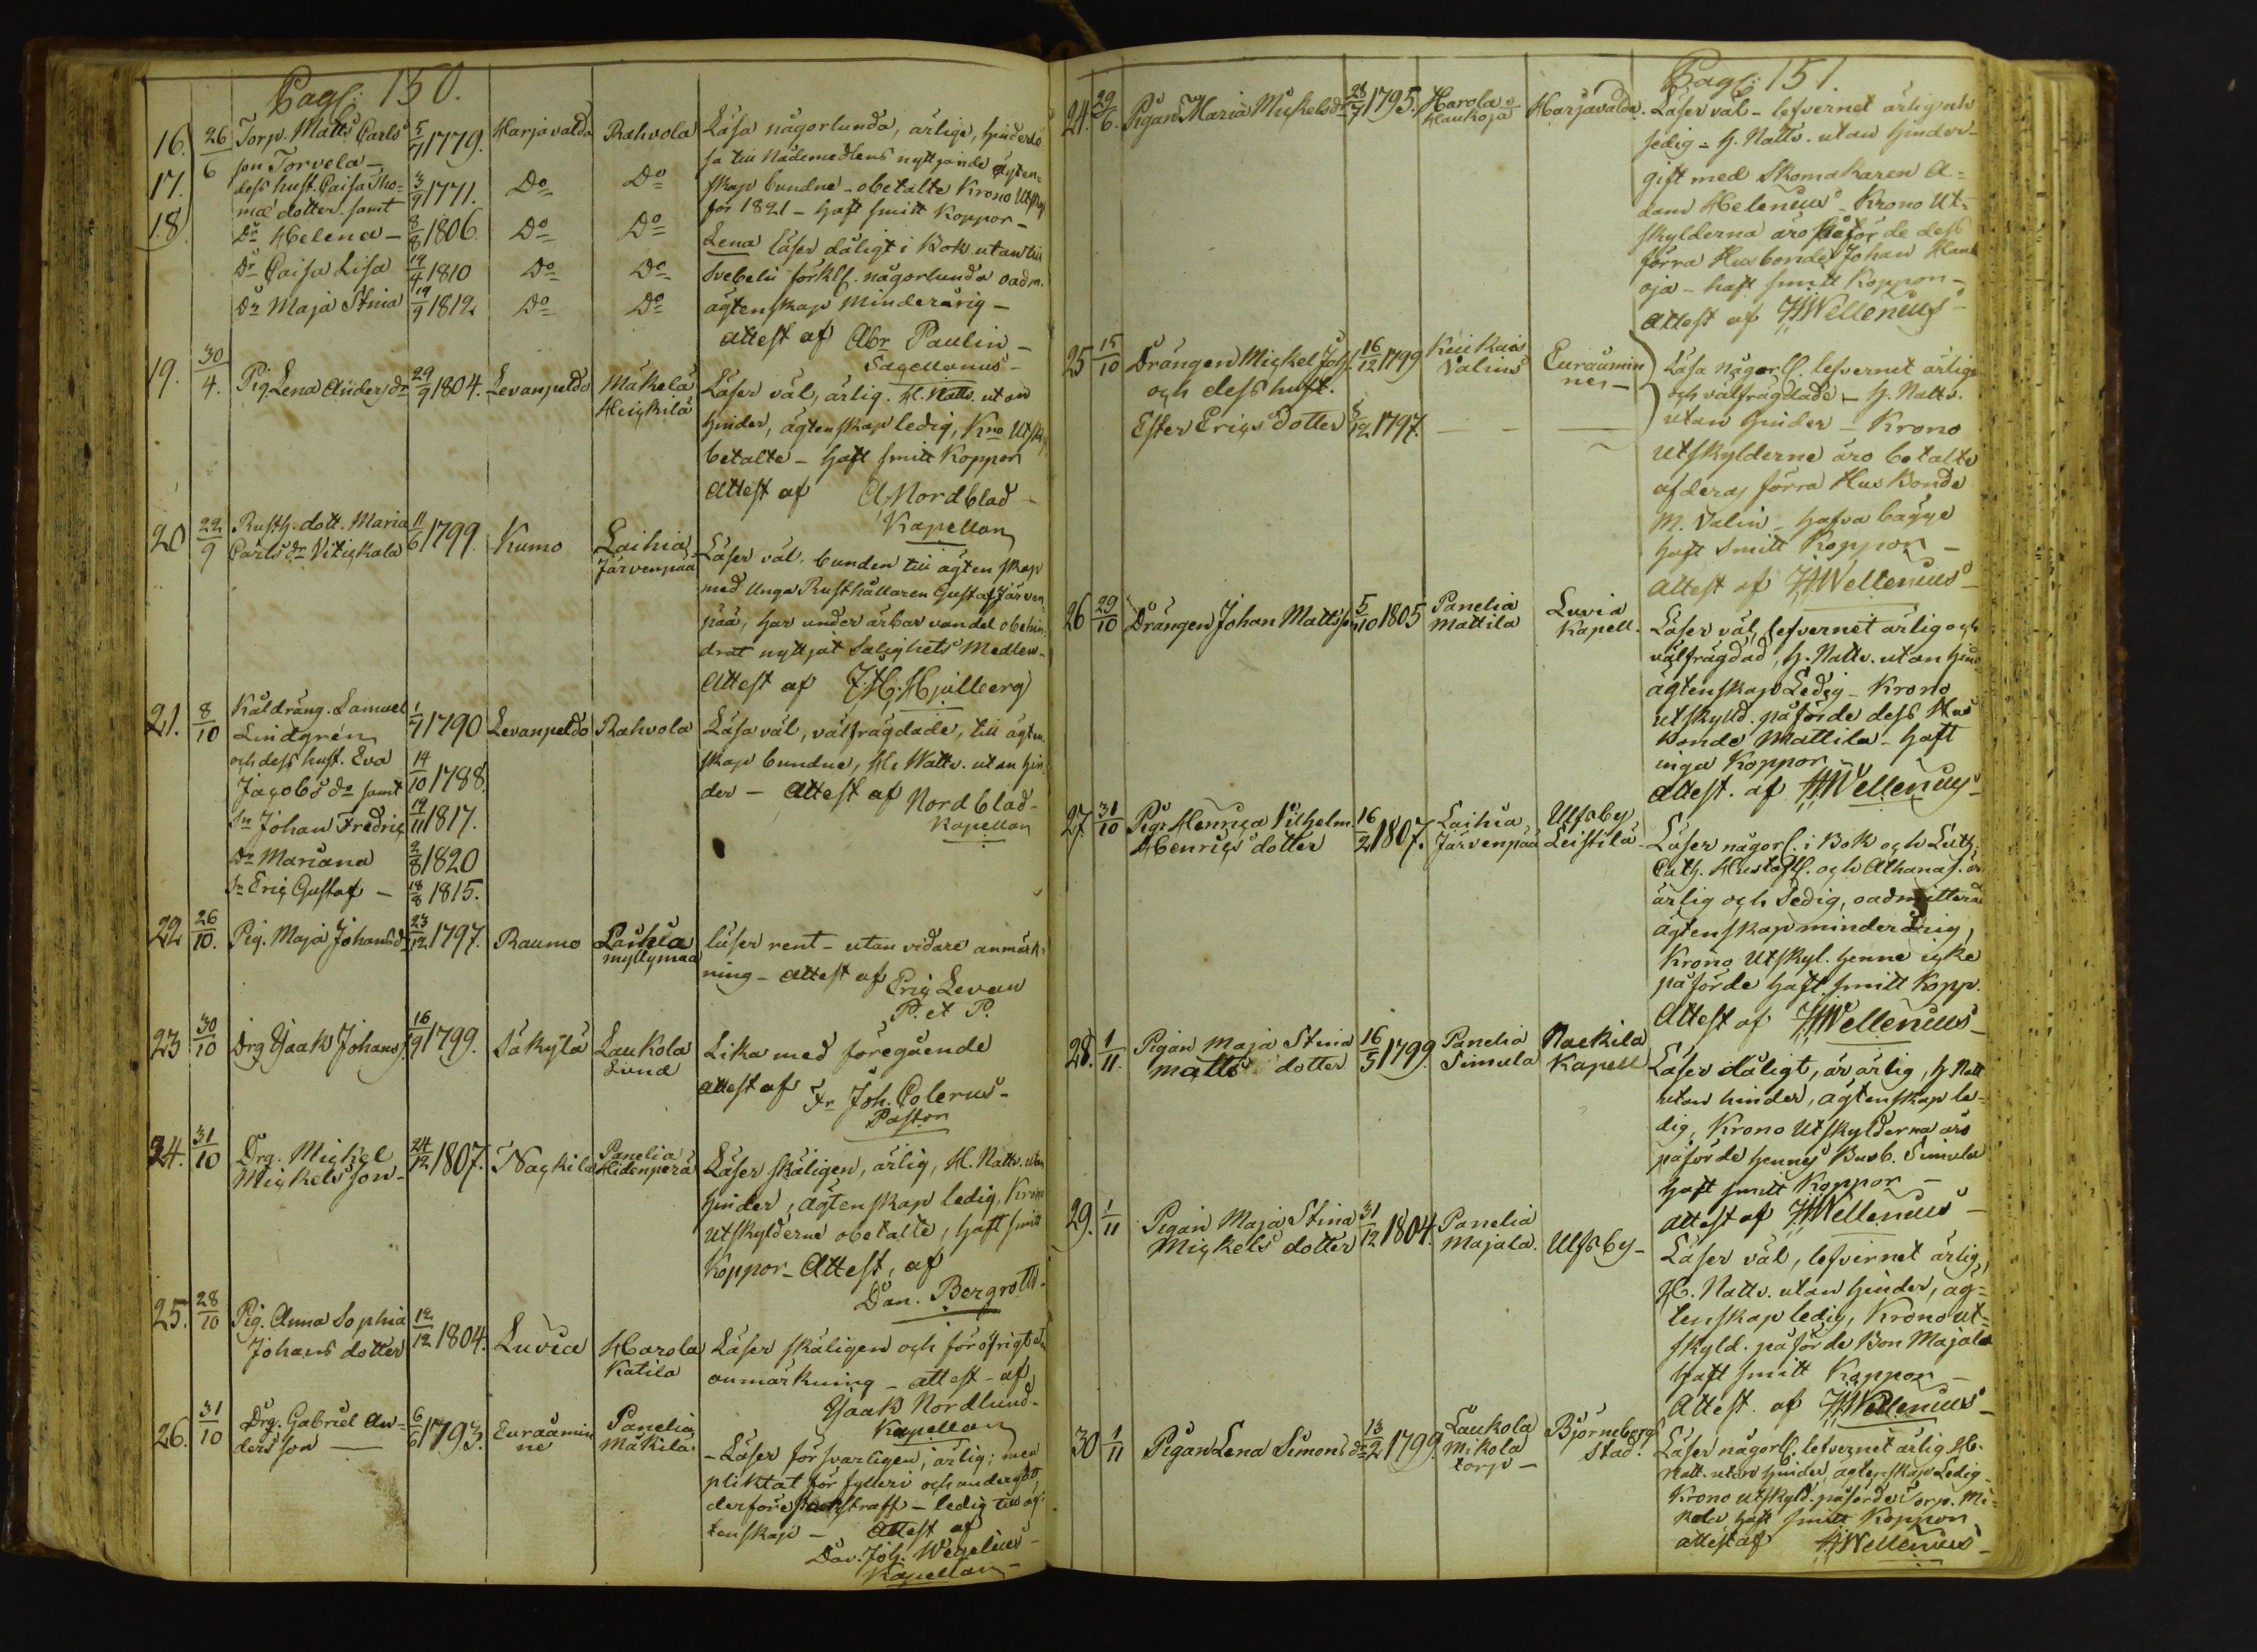 Pag: 150.
16. 26/6 Torp. Matts Carls 5/7 1779. Harjavalda Rahvola Läsa någorlunda, ärlige, hinderlö
son Torvela – sa till Nådemedlens nyttjande ägten-
17. dess hust. Caisa Tho= 3/9 1771. Do Do skap bundne – obetalte Krono Utsk
mæ dotter. samt för 1821 – haft smitt Koppor –
18. Dr Helena – 8/8 1806. Do Do Lena läser dåligt i Bok utantill
Dr Caisa Lisa 19/4 1810 Do Do Svebelii förkl. någorlunda oadm.
Dr Maja Stina 19/9 1812 Do Do ägtenskap minderårig –
attest af Abr. Paulin –
Sacellanus –
19. 30/4. Pig. Lena Anders dr 29/9 1804. Levanpeldo Mäkelä Läser väl, ärlig. H. Nattv. utan
Heickilä hinder, ägtenskap ledig, Kno Utsk.
betalte – haft smitt Koppor
Attest af A. Nordblad –
Kapellan
20 22/9 Rusth. dott. Maria 11/6 1799. Kumo Laihia Läser väl, bunden till ägtenskap
Carls dr Vitickala Järvenpää med Unga Rusthållaren Gustaf Järven
pää, har under ärbar vandel obehin=
drat nyttjat Salighets Medlen –
Attest af J. H. Hjulberg
21. 8/10 Kaldräng. Samuel 1/7 1790 Levanpeldo Rahvola Läsa väl, välfrägdade, till ägten
Lindgrén skap bundne, H. Nattv. utan hin
och dess hust. Eva 14/10 1788. der – Attest af Nordblad –
Jacobs dr samt Kapellan
Sn Johan Fredric 19/11 1817.
Dr Mariana 2/8 1820
Sn Eric Gustaf – 18/8 1815.
22 26/10. Pig. Maja Johansd. 23/12 1797. Raumo Laihia läser rent – utan vidare anmärk-
myllymaa ning – attest af Eric Levan
P. et P.
23 30/10 Drg Isaak Johans s. 16/9 1799. Säkylä Laukola Lika med föregående
Lund attest af Fr Joh. Polerus –
Pastor
24. 31/10 Drg. Mickel 24/12 1807. Nackila Panelia Läser skäligen, ärlig, H. Nattv. utan
Mickelsson – Hidenperä hinder, ägtenskap ledig, Krono
utskylderne obetalte, haft smitt
Koppor – Attest, af
Dan. Bergroth.
25. 28/10 Pig. Anna Sophia 12/12 1804. Luvia Harola Läser skäligen och för öfrigt utan
Johans dotter Katila anmärkning – attest – af
Isaak Nordlund –
Kapellan
26. 31/10 Drg. Gabriel An= 6/6 1793. Euraåmin Panelia – Läser försvarligen, ärlig; men
dersson – ne Mäkila pliktat för fylleri och undergått
derföre straff – ledig till äg
tenskap – Attest af
Dav. Joh. Wegelius –
Kapellan –
Pag: 151.
24. 29/6. Pigan Maria Mickelsdr 28/7 1795. Harola Harjavalda. Läser väl – lefvernet ärlig och
Haukoja sedig – H. Nattv. utan hinder –
gift med Skomakaren A=
dam Helenius – Krono Ut=
skylderna äro påförde dess
förra Husbonde Johan Hauk
oja – haft smitt Koppor –
Attest af HWellenius –
25 15/10 Drängen Mickel Joh. 16/12 1799 Keikais Euraåmin Läsa någorl. lefvernet ärlige
och dess hust. Valins nes – och välfrägdade – H. Nattv.
Ester Erics dotter 5/12 1797. – – – utan hinder – Krono
Utskylderne äro betalte
af deras förra Husbonde
M. Valin – hafva bägge
haft smitt Koppor –
Attest af HWellenius –
26 29/10 Drängen Johan Mattss 5/10 1805 Panelia Luvia Läser väl, lefvernet ärlig och
Mattila Kapell. välfrägdad, H. Nattv. utan hind
ägtenskap Ledig – Krono
utskyld. påförde dess Hus
bonde Mattila – haft
inga Koppor
Attest. af HWellenius –
27. 31/10 Pigr Henrica Vilhelm. 16/2 1807. Laihia Ulfsby Läser någorl. i Bok och Luth.
Henrics dotter Järvenpää Leistilä – Cath. Hustafl. och Athanas. är
ärlig och Sedig, oadmitterad
ägtenskap minderårig,
Krono Utskyl. henne icke
påförde haft smitt Kopp.
Attest af HWellenius –
28. 1/11. Pigan Maja Stina 16/5 1799. Panelia Nackila Läser dåligt, är ärlig, H. Natt
Matts dotter Simula Kapell utan hinder, ägtenskap le=
dig, Krono Utskylderna äro
påförde hennes Husb. Simula
haft smitt Koppor –
attest af HWellenius –
29. 1/11 Pigan Maja Stina 31/12 1804. Panelia Ulfsby – Läser väl, lefvernet ärlig,
Mickels dotter Majala. H. Nattv. utan hinder, äg=
tenskap ledig, Krono ut=
skyld. påförde Bon Majala
haft smitt Koppor –
Attest. af HWellenius –
30 1/11 Pigan Lena Simons dr 13/2 1799. Laukola Björneborgs Läser någorl. lefvernet ärlig H.
Mikola stad. Natt. utan hinder, ägtenskap Ledig –
torp – Krono utskyld. påförde Torp. Mi=
kola haft smitt Koppor
attest af HWellenius –